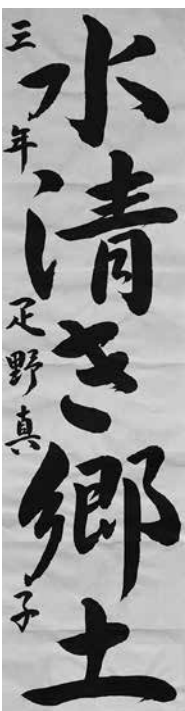 水清き郷土
三年 疋野真子